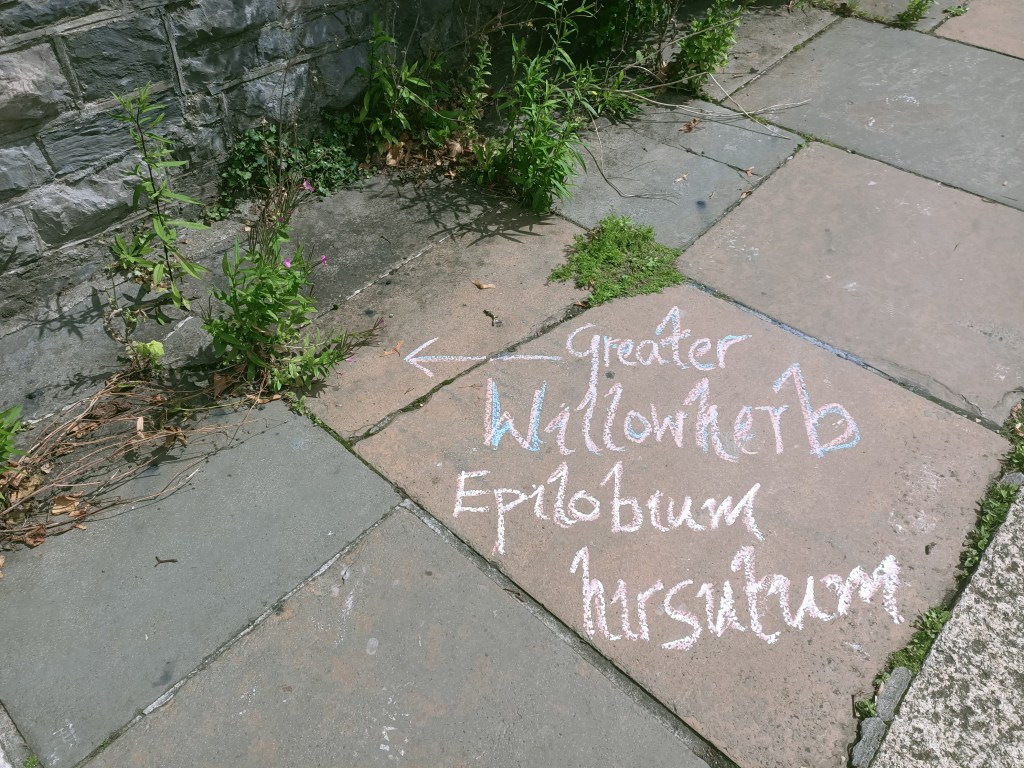 ← Greater
Willowherb
Epilobium
hirsutum